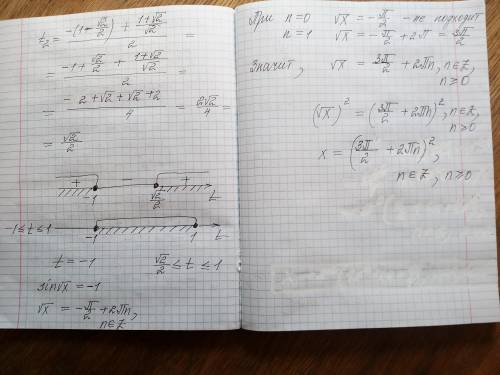 t₂ = (-(1-√2/2) + (1+√2)/√2)/2 =
= (-1+√2/2 + (1+√2)/√2)/2 =
= (-2+√2+√2+2)/4 = 2√2/4 =
= √2/2
+ - +
-1 √2/2 t
-1≤t≤1 -1 1 t
t = -1 √2/2 ≤ t ≤ 1
sin√x = -1
√x = -π/2 + 2πn,
n∈Z
При n=0 √x = -π/2 - не подходит
n=1 √x = -π/2 + 2π = 3π/2
Значит, √x = 3π/2 + 2πn, n∈Z,
n≥0
(√x)² = (3π/2 + 2πn)², n∈Z,
n≥0
x = (3π/2 + 2πn)²,
n∈Z, n≥0